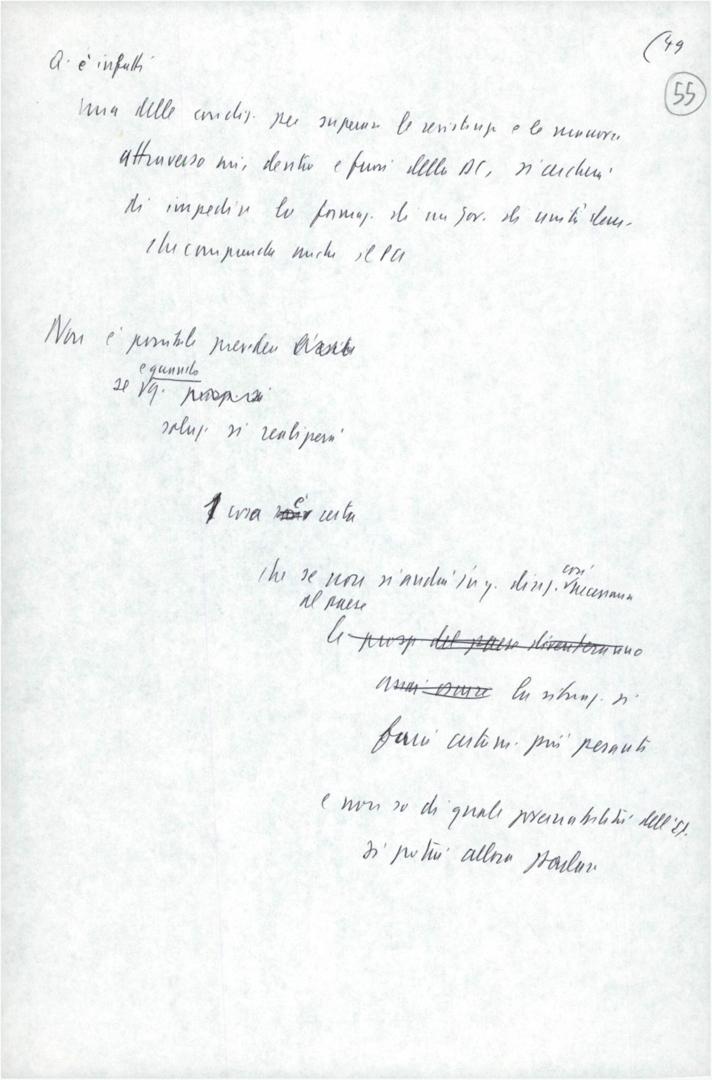 (49
55
Q. è infatti
una delle condiz. per superare le resistenze e le manovre
attraverso cui, dentro e fuori della DC, si cercherà
di impedire la formaz. di un gov. di unità dem.
che comprenda anche il PCI
Non è possibile prevedere
e quando
se q. prospe
soluz. si realizzerà
1 cosa è certa
così
che se non si andrà in q. direz. necessaria
al paese
le prosp del paese diventeranno
assai oscure la situaz. si
farà certam. più pesante
e non so di quale governabilità dell'It.
si potrà allora parlare